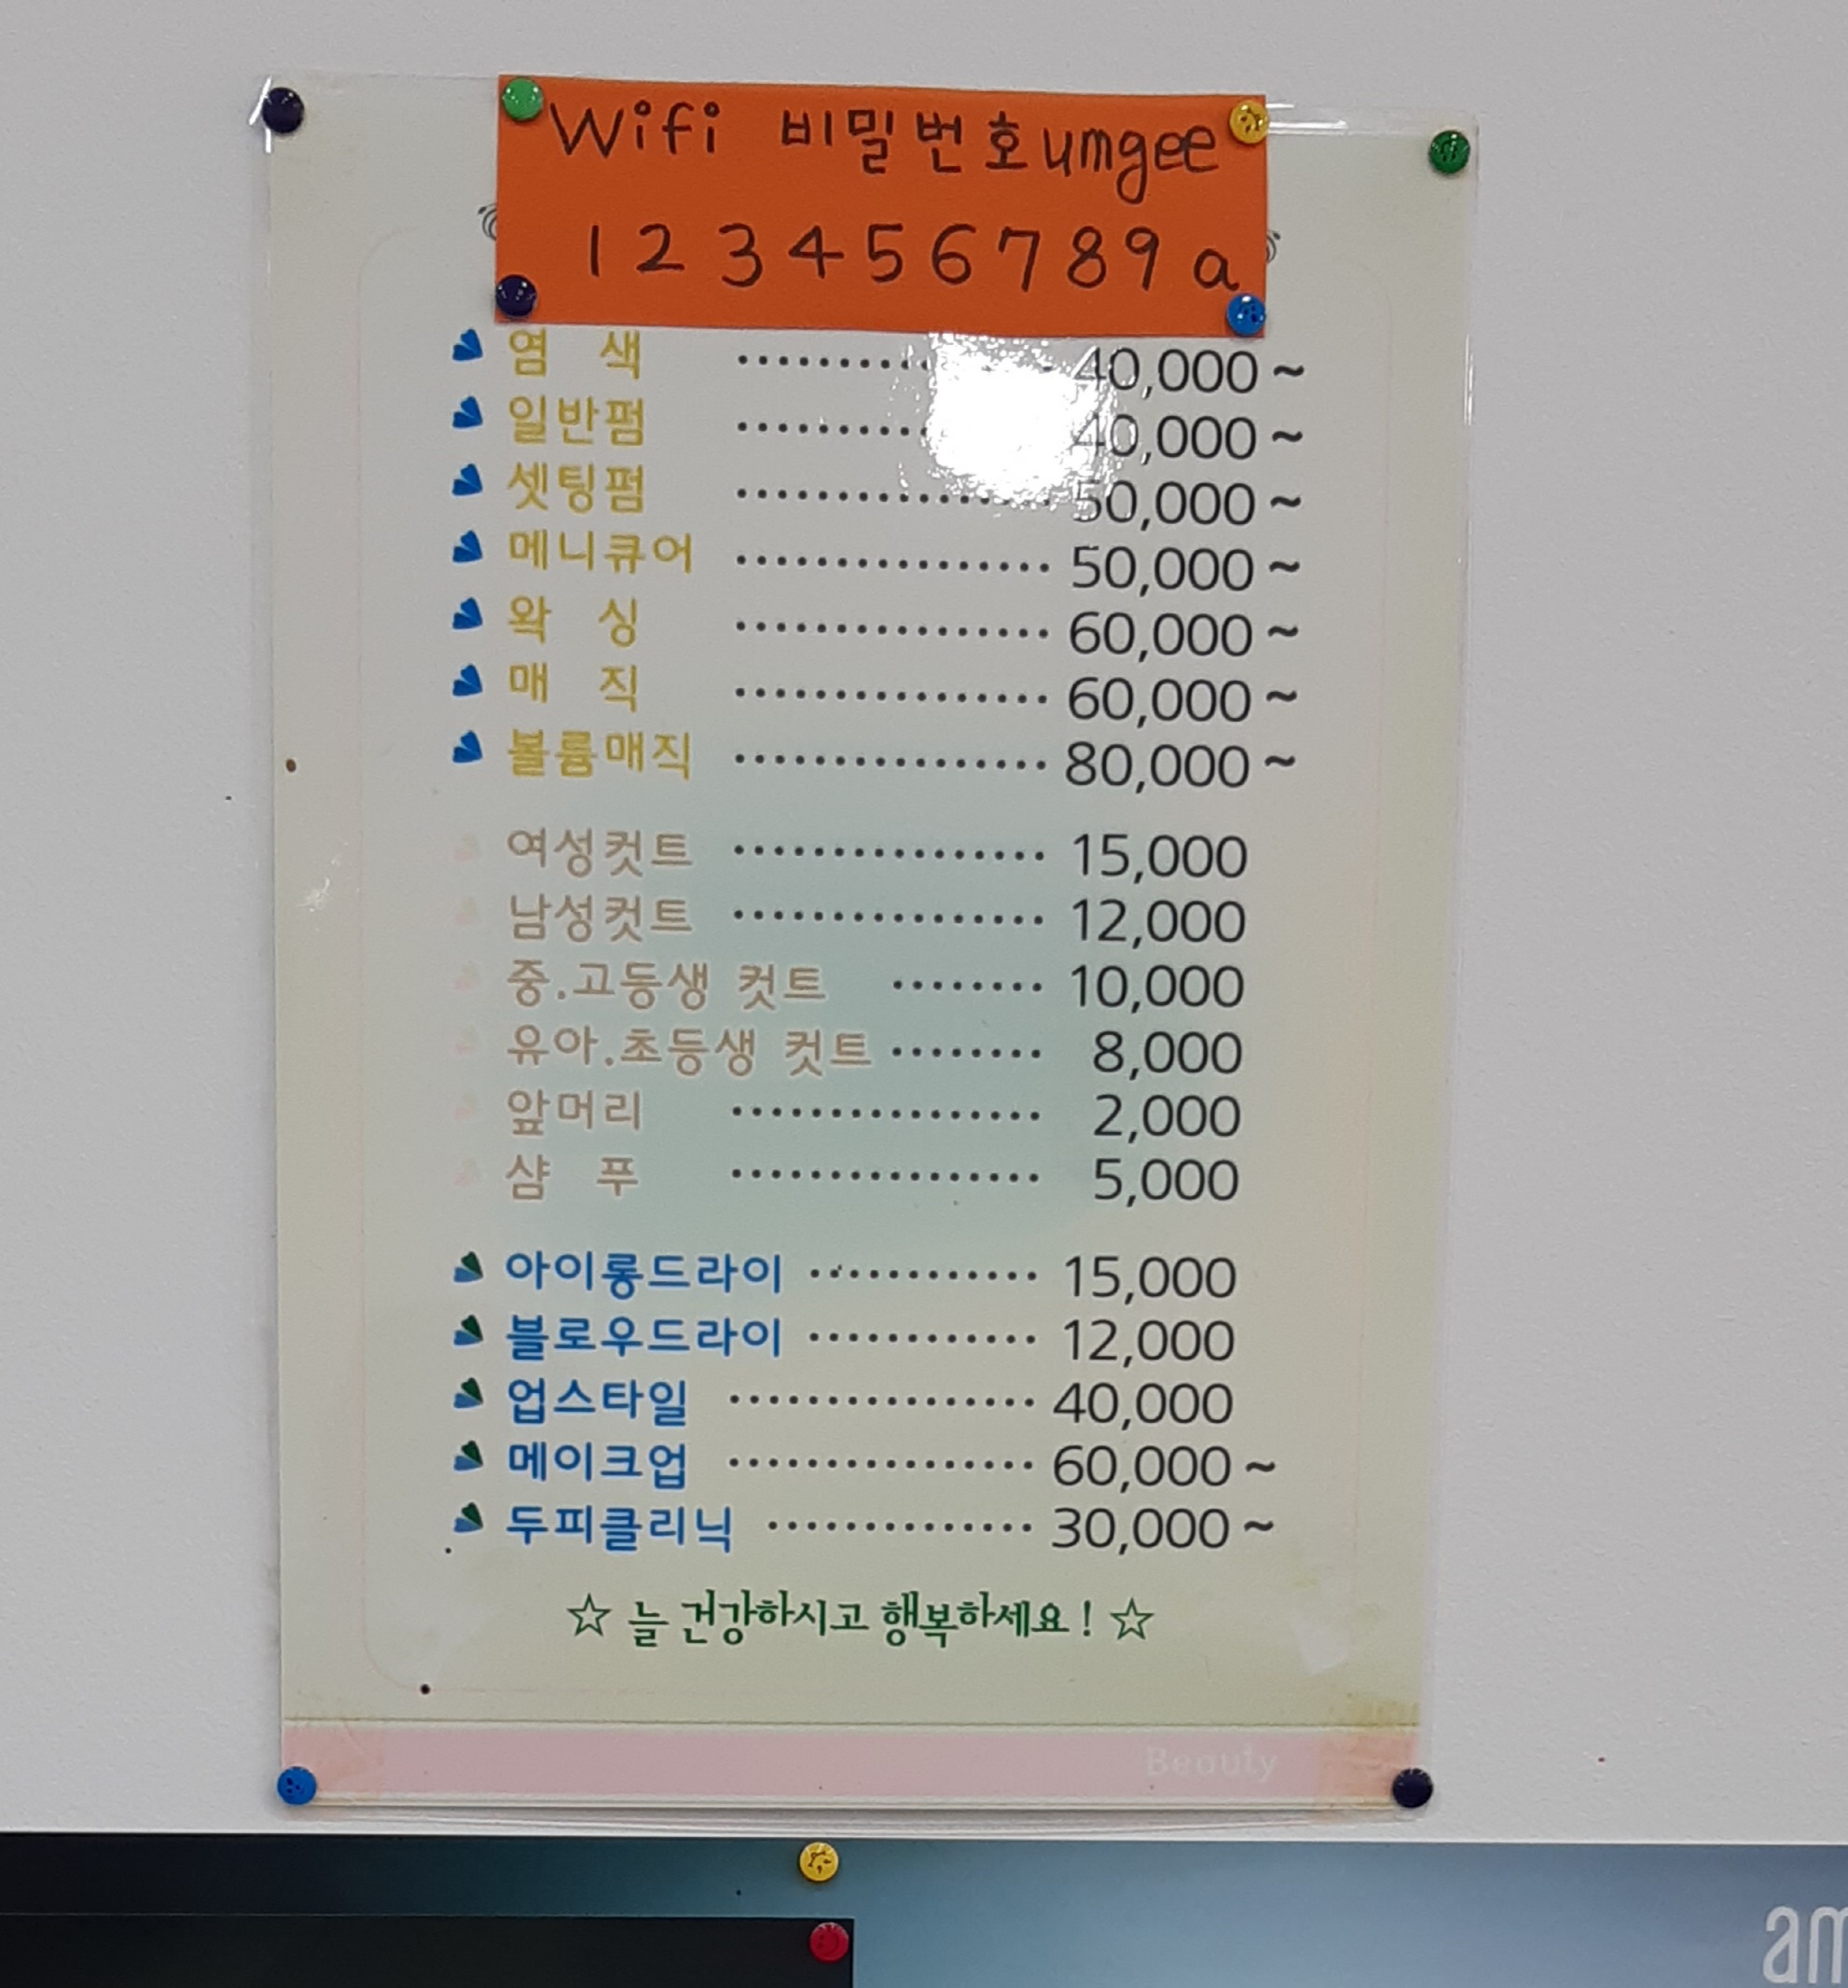 Wifi 비밀번호 umgee
123456789a
염 색 ················ 40,000~
일반펌 ················ 40,000~
셋팅펌 ················ 50,000~
메니큐어 ················ 50,000~
왁 싱 ················ 60,000~
매 직 ················ 60,000~
볼륨매직 ················ 80,000~
여성컷트 ················ 15,000
남성컷트 ················ 12,000
중.고등생 컷트 ········ 10,000
유아.초등생 컷트 ········ 8,000
앞머리 ················ 2,000
샴 푸 ················ 5,000
아이롱드라이 ············ 15,000
블로우드라이 ············ 12,000
업스타일 ················ 40,000
메이크업 ················ 60,000~
두피클리닉 ·············· 30,000~
☆ 늘 건강하시고 행복하세요! ☆
Beauty
am